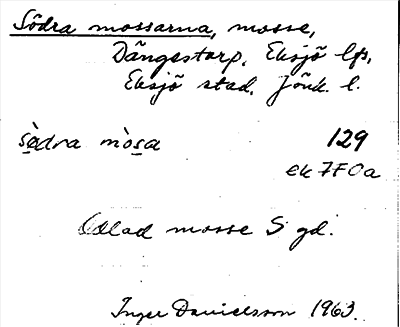 Södra mossarna, mosse,
Dångestorp, Eksjö lfs,
Eksjö stad, Jönk. l.
sò̱dra mòs̱a 129
ek 7F0a
Odlad mosse S gd.
Inger Danielsson 1963.